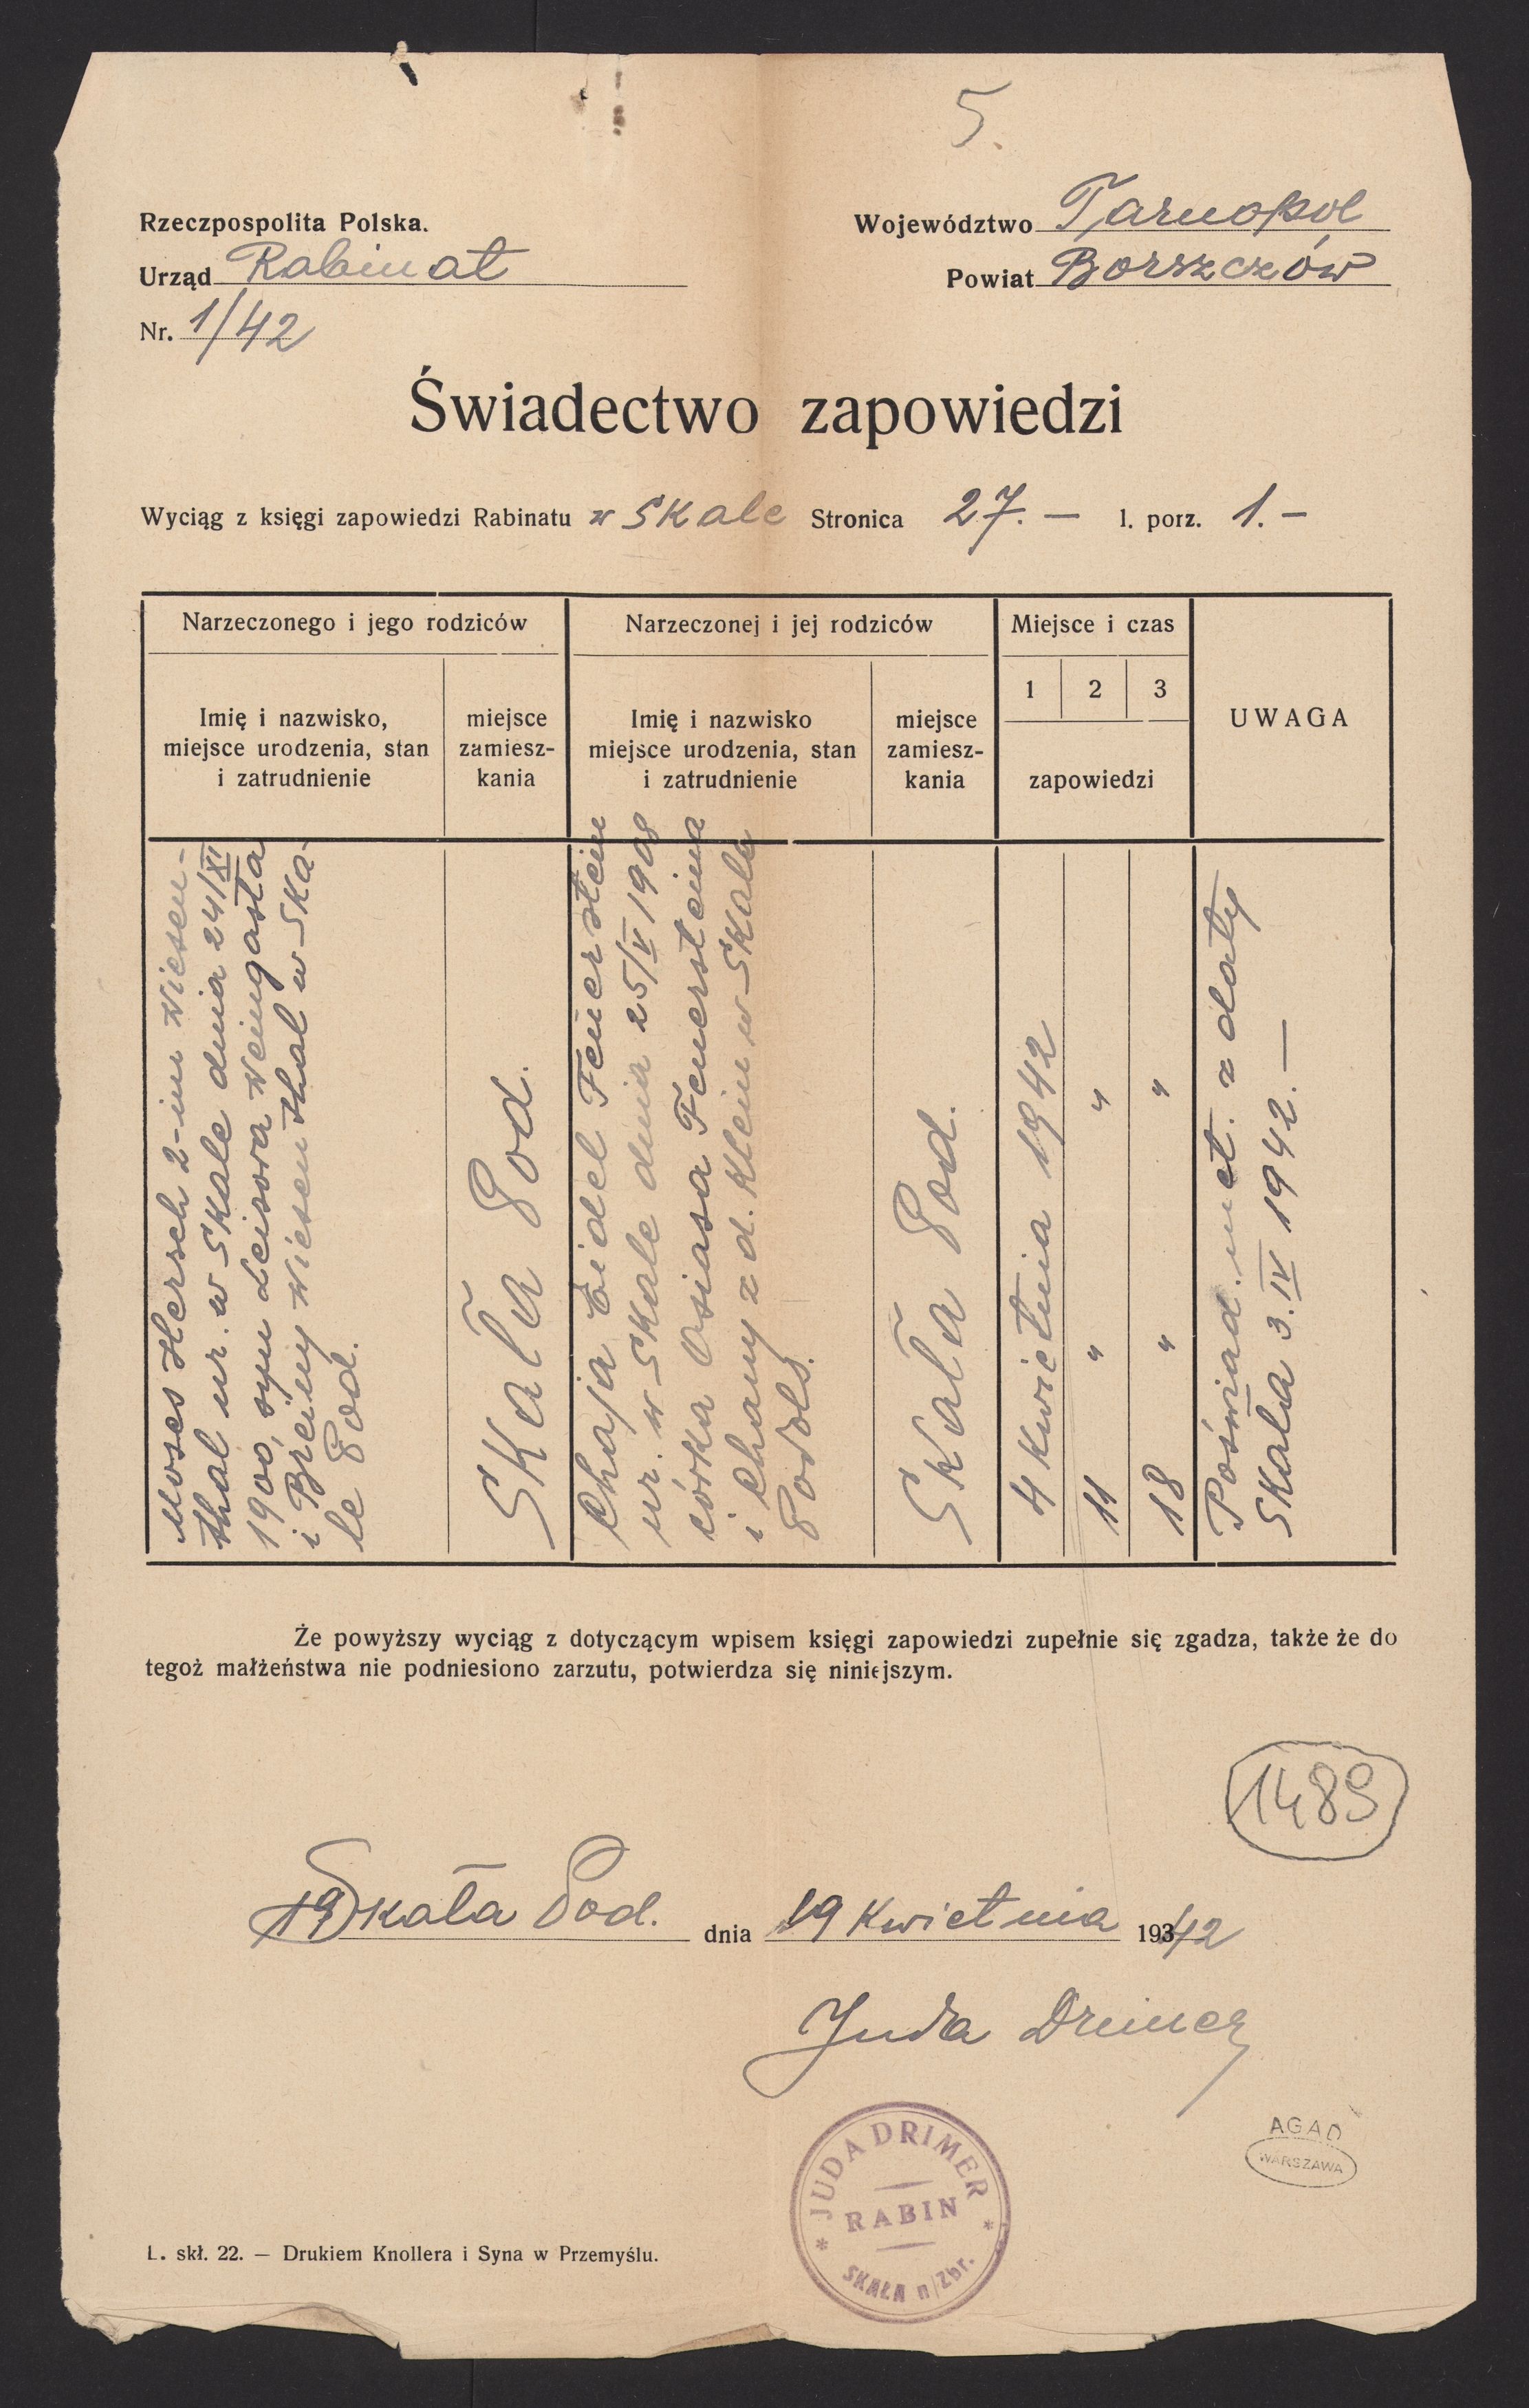 5.
Rzeczpospolita Polska.
Województwo Tarnopol
Urząd Rabinat
Powiat Borszczów
Nr. 1/42
Świadectwo zapowiedzi
Wyciąg z księgi zapowiedzi Rabinatu w Skale Stronica 27.— l. porz. 1.—
Narzeczonego i jego rodziców
Narzeczonej i jej rodziców
Miejsce i czas
UWAGA
Imię i nazwisko,
miejsce urodzenia, stan
i zatrudnienie
miejsce
zamiesz-
kania
Imię i nazwisko
miejsce urodzenia, stan
i zatrudnienie
miejsce
zamiesz-
kania
1 2 3
zapowiedzi
Moses Hersch 2-im Wiesen-
thal ur. w Skale dnia 24/XI
1900, syn Leisora Weingasta
i Breiny Wiesenthal w Ska-
le Pod.
Skała Pod.
Chaja Eidel Feuerstein
ur. w Skale dnia 25/V 1908
córka Osiasa Feuersteina
i Chany z d. Klein w Skale
Podols.
Skała Pod.
4 kwietnia 1942
11 " "
18 " "
Poświad. met. z daty
Skała 3. IV 1942.—
Że powyższy wyciąg z dotyczącym wpisem księgi zapowiedzi zupełnie się zgadza, także że do
tegoż małżeństwa nie podniesiono zarzutu, potwierdza się niniejszym.
1489
Skała Pod. dnia 19 kwietnia 19342
Juda Drimer
JUDA DRIMER
RABIN
SKAŁA n/Zbr.
AGAD
WARSZAWA
L. skł. 22. — Drukiem Knollera i Syna w Przemyślu.